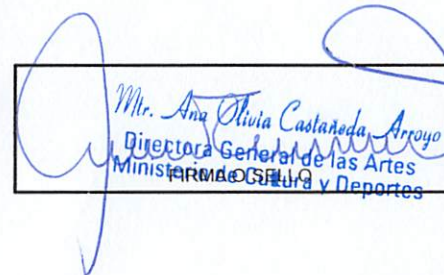 Mtr. Ana Olivia Castañeda Arroyo
Directora General de las Artes
Ministerio de Cultura y Deportes
FIRMA O SELLO